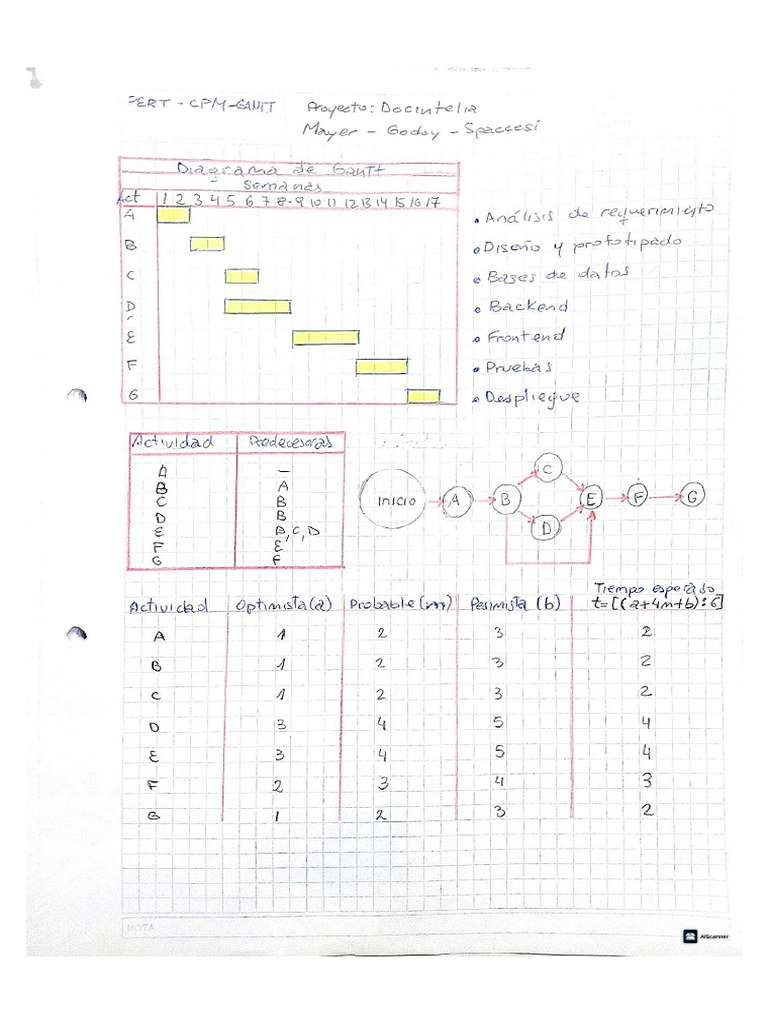 PERT - CPM-GANTT Proyecto: Docintelia
Mayer - Godoy - Spaccesi
Diagrama de Gantt
Semanas
Act 1 2 3 4 5 6 7 8-9 10 11 12 13 14 15 16 17
A
B
C
D
E
F
G
• Análisis de requerimiento
• Diseño y prototipado
• Bases de datos
• Backend
• Frontend
• Pruebas
• Despliegue
Actividad Predecesoras
A —
B A
C B
D B
E B, C, D
F E
G F
INICIO A B C D E F G
Actividad Optimista (a) Probable (m) Pesimista (b) Tiempo esperado t=[(a+4m+b):6]
A 1 2 3 2
B 1 2 3 2
C 1 2 3 2
D 3 4 5 4
E 3 4 5 4
F 2 3 4 3
G 1 2 3 2
NOTA
AIScanner